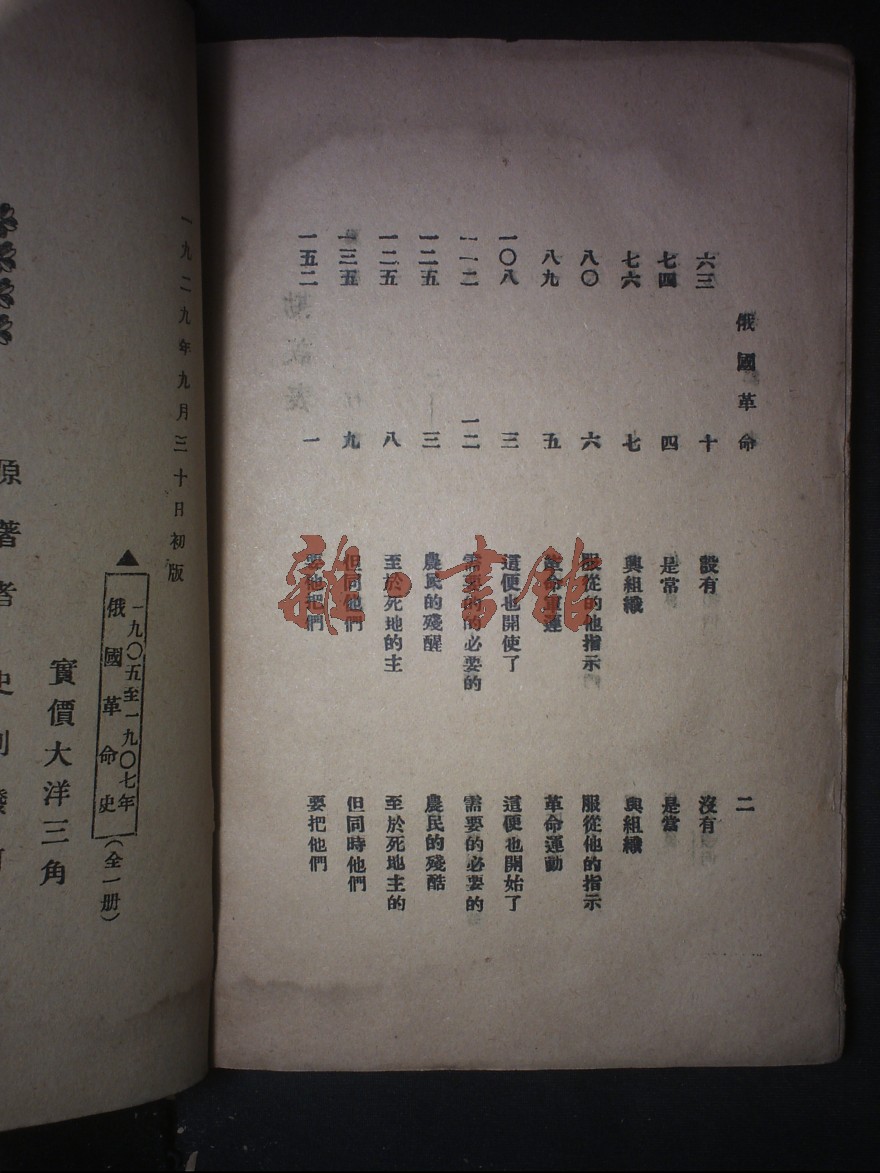 俄國革命
二
六三 十 設有 沒有
七四 四 是常 是當
七六 七 與組織 與組織
八〇 六 服從的他指示 服從他的指示
八九 五 革命運動
一〇八 三 這便也開使了 這便也開始了
一一二 一二 需要的的必要的 需要的必要的
一二五 三 農民的殘醒 農民的殘酷
一二五 八 至於死地的主 至於死地主的
一三五 九 但同他們 但同時他們
一五二 一 要他把們 要把他們
雜·書館
一九二九年九月三十日初版
▲
一九〇五至一九〇七年
俄國革命史
(全一册)
實價大洋三角
原著者 史列